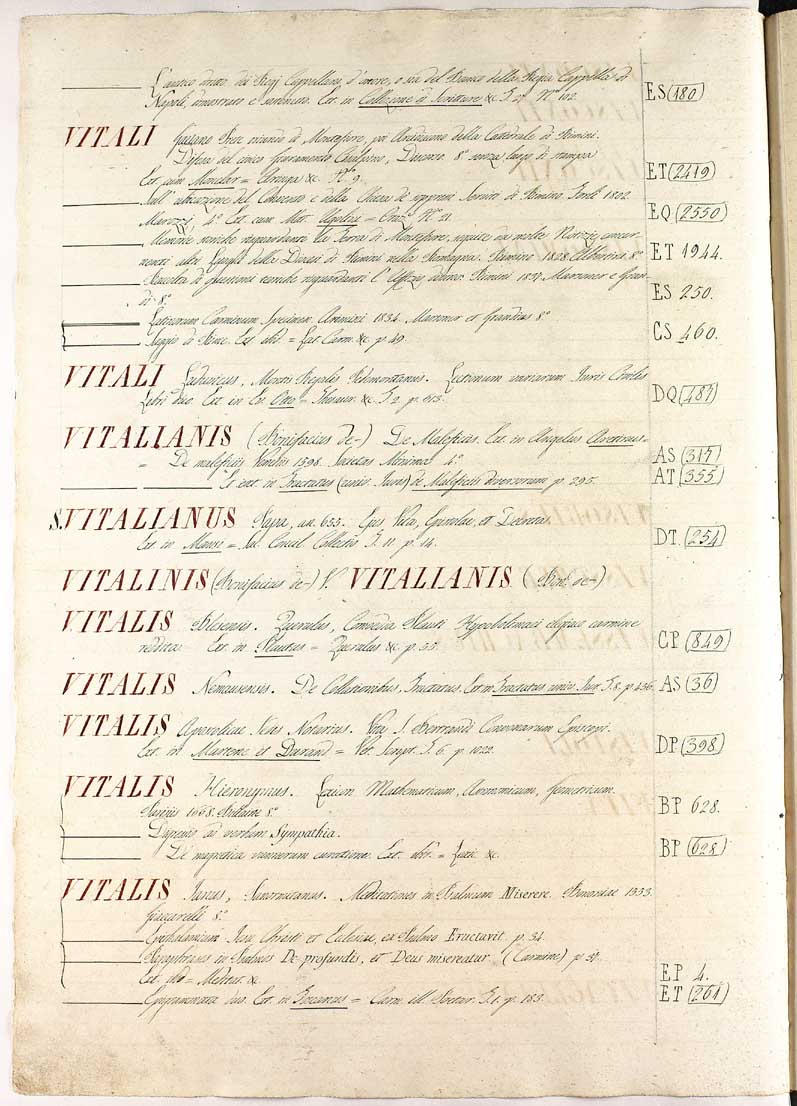 L'antico dritto dei Regj Cappellani d'onore, o sia del Banco della Regia Cappella di
Napoli, dimostrato e Ext. in Collezione di Scritture &c. T. 2. N.° 102. ES (180)
VITALI Gaetano Prete di Montefiore, poi Arcidiacono della Cattedrale di Rimini.
Difesa del civico Giuramento Cisalpino, Discorso 8.° senza luogo di stampa
Ext. cum &c. N.° 9. ET (2419)
Sull' ubicazione del Convento e della Chiesa de' Serviti di Rimino 1802.
Marsonj 4.° Ext. cum N.° 21. EQ (2550)
Memorie storiche risguardanti la Terra di Montefiore, seguite da molte Notizie concer-
nenti altri Luoghi della Diocesi di Rimini nella Romagna. Rimino 1828. Albertini 8.° ET 1944.
Raccolta di questioni risguardanti l' Uffizio divino. Rimini 1827. Marsoner e Gran-
di 8.° ES 250.
Latinorum Carminum Specimen. Arimini 1834. Marsoner et Grandius 8.°
Saggio di Rime. Ext. ibi. = Lat. Carm. &c. p. 49. CS 460.
VITALI Ludovicus, Montis Regalis Pedemontanus. Lectionum variarum Juris Civilis
Libri duo. Ext. in Ev. Otto = Thesaur. &c. T. 2. p. 613. DQ (187)
VITALIANIS (Bonifacius de-) De Maleficiis. Ext. in Angelus Aretinus =
= De maleficiis Venetiis 1598. Societas Minima 4.° AS (317)
Et ext. in Tractatus (univ. Juris) de Maleficiis diversorum p. 295. AT (355)
S. VITALIANUS Papa, an. 655. Ejus Vita, Epistolae, et Decreta.
Ext. in Mansi = Sac. Concil. Collectio T. 11. p. 14. DT. (254)
VITALINIS (Bonifacius de-) V. VITALIANIS (Bon. de-)
VITALIS Blesensis. Querulus, Comoedia Plauti elegiaco carmine
reddita. Ext. in Plautus = Querulus &c. p. 55. CP (849)
VITALIS Nemausensis. De Collectionibus, Tractatus. Ext. in Tractatus univ. Jur. T. 8. p. 436. AS (36)
VITALIS Apostolicae Sedis Notarius. Vita S. Bertrandi Convenarum Episcopi.
Ext. in Martene et Durand = Vet. Script. T. 6. p. 1022. DP (398)
VITALIS Hieronymus. Lexicon Mathematicum, Astronomicum, Geometricum.
Parisiis 1668. Billaine 8.° BP 628.
Digressio ad verbum Sympathia.
De magnetica vulnerum curatione. Ext. ibi. = Lexic. &c. BP (628)
VITALIS Janus, Panormitanus. Meditationes in Psalmum Miserere. Bononiae 1533.
Giaccarelli 8.°
Epithalamium Jesu Christi et Ecclesiae, ex Psalmo Eructavit. p. 34.
Paraphrases in Psalmos De profundis, et Deus misereatur (Carmine) p. 37.
Ext. ibi = Meditat. &c. EP 4.
Epigrammata duo. Ext. in Toscanus = Carm. ill. Poetar. T. 1. p. 183. ET (261)